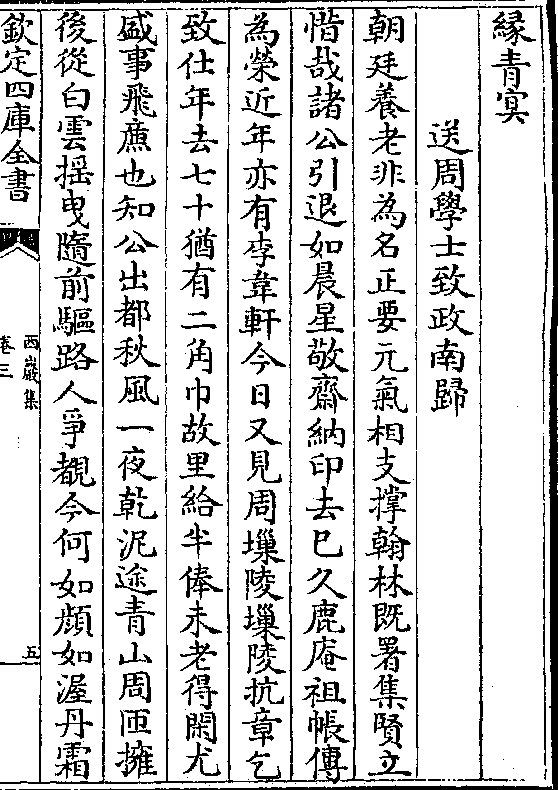 緣青冥
送周學士致政南歸
朝廷養老非為名正要元氣相支撐翰林既署集賢立
惜哉諸公引退如晨星敬齋納印去已久鹿庵祖帳傳
為榮近年亦有李韋軒今日又見周堁陵堁陵抗章乞
致仕年去七十猶有二角巾故里給半俸未老得閑尤
盛事飛㢘也知公出都秋風一夜乾泥途青山周匝擁
後從白雲摇曳隨前驅路人爭覩今何如顔如渥丹霜
欽定四庫全書
西巖集
卷三
五